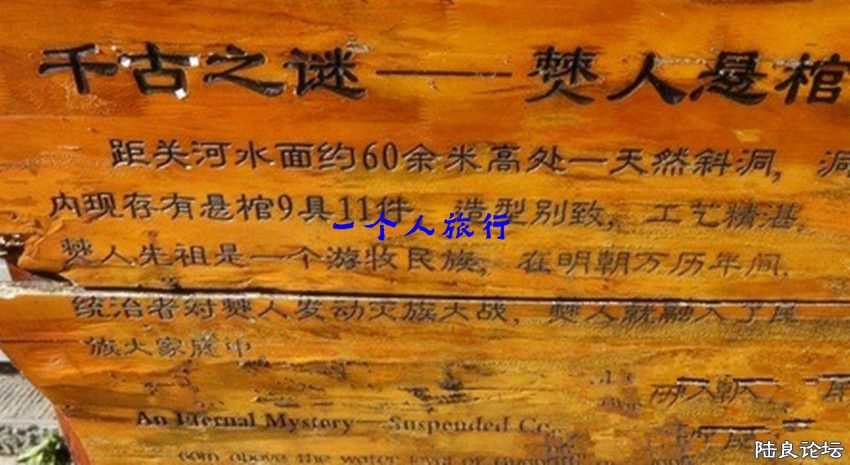 千古之谜——僰人悬棺
距关河水面约60余米高处一天然斜洞，洞
内现存有悬棺9具11件，造型别致，工艺精湛，
一个人旅行
僰人先祖是一个游牧民族，在明朝万历年间，
统治者对僰人发动灭族大战，僰人就融入了民
族大家庭中
An Eternal Mystery—Suspended Co
60m above the water level of
陆良论坛